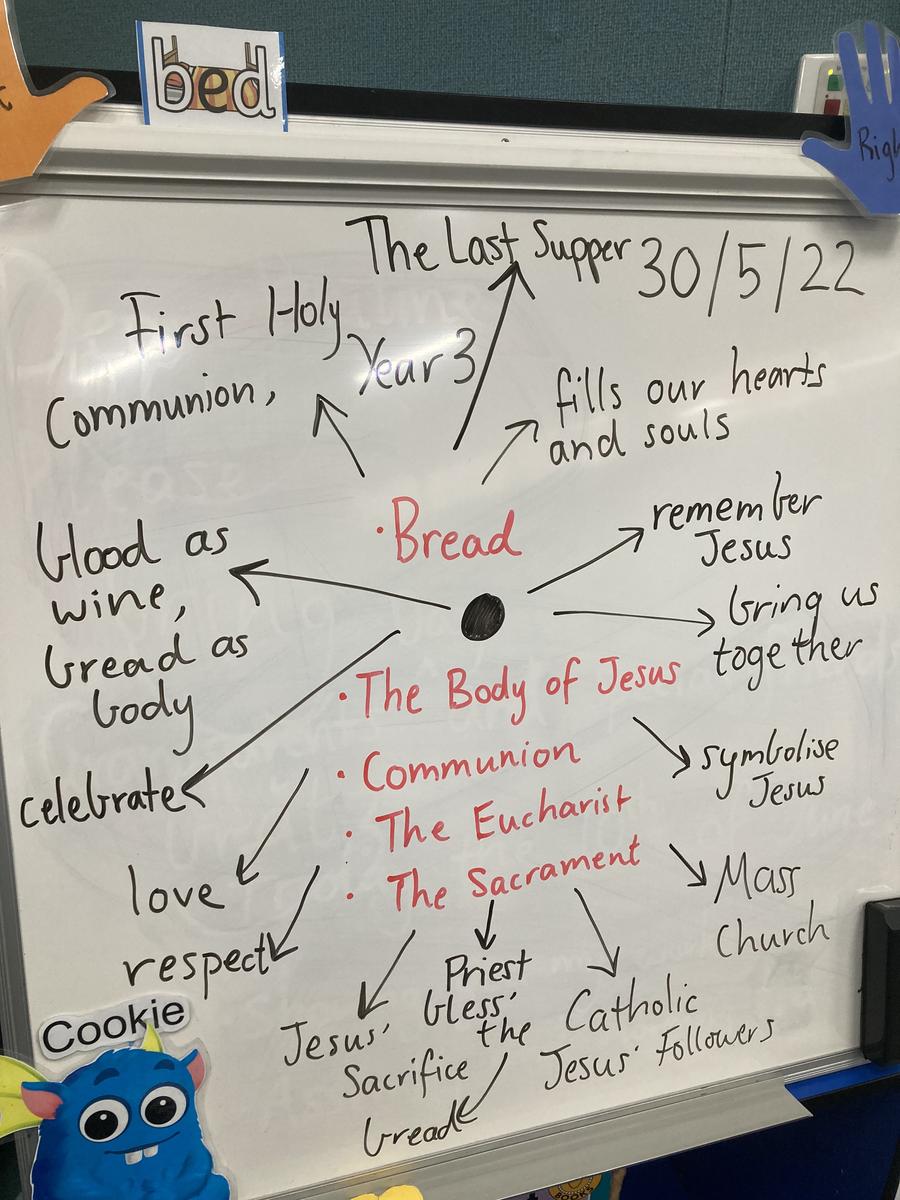 bed
The Last Supper 30/5/22
First Holy
Communion,
Year 3
fills our hearts
and souls
• Bread
remember
Jesus
blood as
wine,
bread as
body
bring us
together
• The Body of Jesus
• Communion
symbolise
Jesus
celebrate
• The Eucharist
• The Sacrament
love
Mass
Church
respect
Priest
bless'
the
bread
Jesus'
Sacrifice
Catholic
Jesus' Followers
Cookie